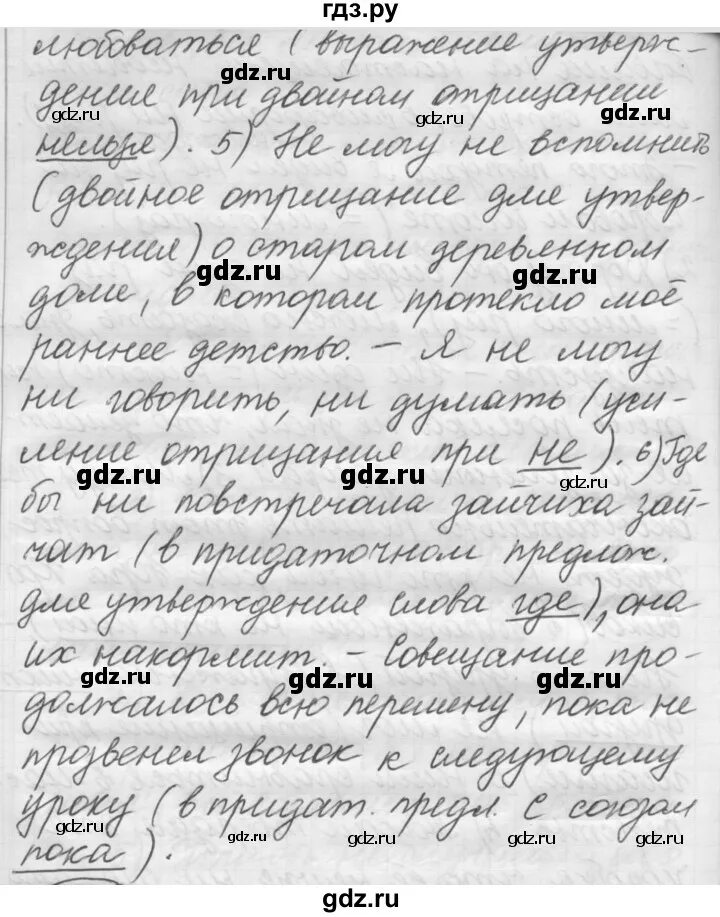 гдз.ру
любоваться (выражение утверж-
дения при двойном отрицании
нельзя). 5) Не могу не вспомнить
(двойное отрицание для утвер-
ждения) о старом деревянном
доме, в котором протекло моё
раннее детство. – Я не могу
ни говорить, ни думать (уси-
ление отрицания при не). 6) Где
бы ни повстречала зайчиха зай-
чат (в придаточном предлож.
для утверждения слова где), она
их накормит. – Совещание про-
должалось всю перемену, пока не
прозвенел звонок к следующему
уроку (в придат. предл. с союзом
пока).
gdz.ru